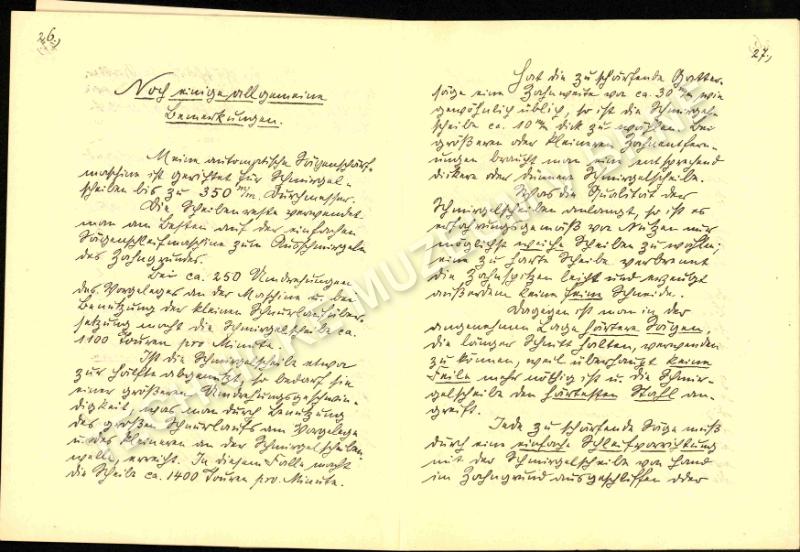 26.)
Noch einige allgemeine
Bemerkungen.
Meine automatische Sägenschärf-
maschine ist gerichtet für Schmirgel-
scheiben bis zu 350 m/m Durchmesser.
Die Scheibenreste verwendet
man am Besten auf der einfachen
Sägenschleifmaschine zum Ausschmirgeln
des Zahngrundes.
Bei ca. 250 Umdrehungen
des Vorgeleges an der Maschine u. bei
Benützung der kleinen Schnurlaufüber-
setzung macht die Schmirgelscheibe ca.
1100 Touren pro Minute.
Ist die Schmirgelscheibe etwa
zur Hälfte abgenützt, so bedarf sie
einer größeren Umdrehungsgeschwin-
digkeit, was man durch Benützung
des großen Schnurlaufs am Vorgelege
u. des kleineren an der Schmirgelscheiben-
welle, erreicht. In diesem Falle macht
die Scheibe ca. 1400 Touren pro Minute.
27.)
Hat die zu schärfende Gatter-
säge eine Zahnweite von ca. 30 m/m wie
gewöhnlich üblich, so ist die Schmirgel-
scheibe ca. 10 m/m dick zu wählen. Bei
größeren oder kleineren Zahnentfer-
nungen braucht man eine entsprechend
dickere oder dünnere Schmirgelscheibe.
Was die Qualität der
Schmirgelscheiben anlangt, so ist es
erfahrungsgemäß von Nutzen nur
möglichst weiche Scheiben zu wählen;
eine zu harte Scheibe verbrennt
die Zahnspitzen leicht und erzeugt
außerdem keine feine Schneide.
Dagegen ist man in der
angenehmen Lage härtere Sägen,
die länger Schnitt halten, verwenden
zu können, weil überhaupt keine
Feile mehr nöthig ist u. die Schmir-
gelscheibe den härtesten Stahl an-
greift.
Jede zu schärfende Säge muß
durch eine einfache Schleifvorrichtung
mit der Schmirgelscheibe von Hand
im Zahngrund ausgeschliffen oder